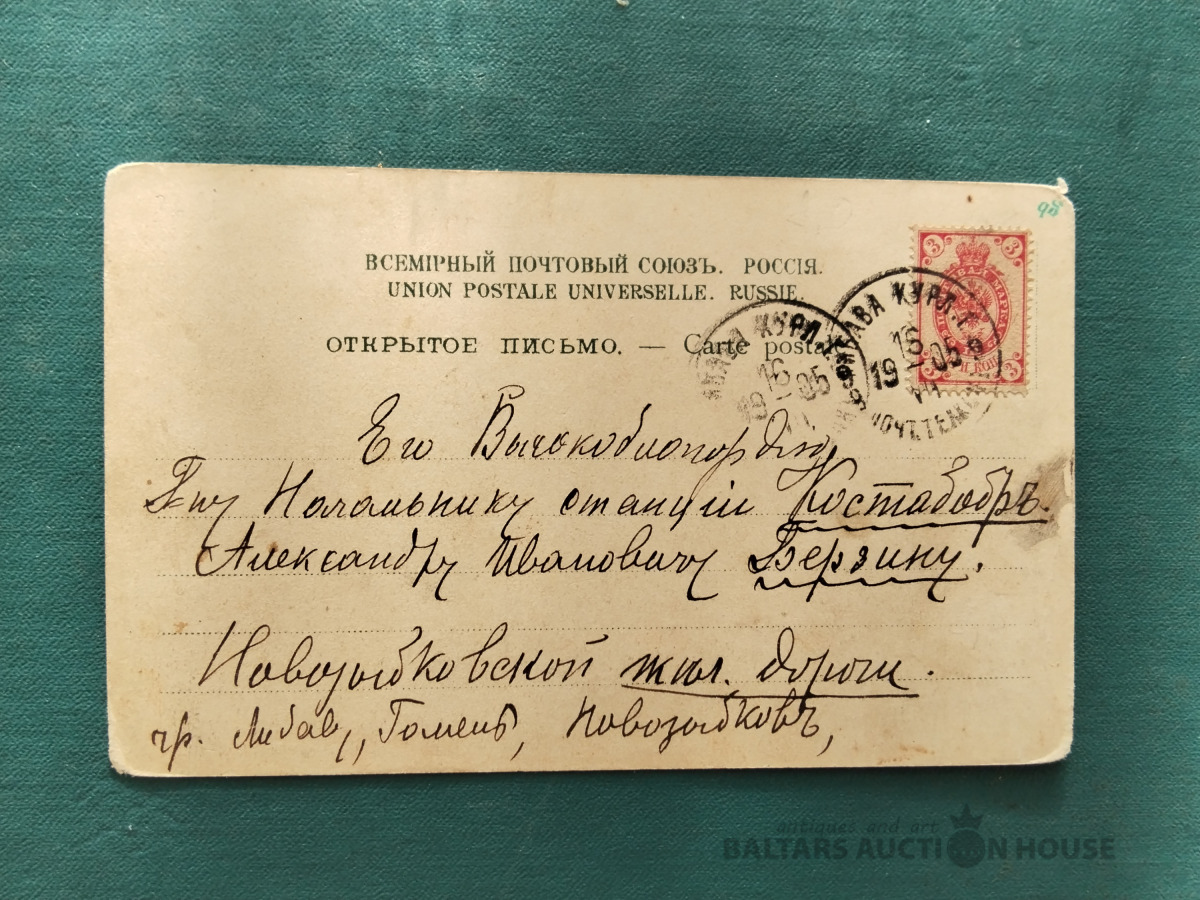 98
ВСЕМІРНЫЙ ПОЧТОВЫЙ СОЮЗЪ. РОССІЯ.
UNION POSTALE UNIVERSELLE. RUSSIE.
ОТКРЫТОЕ ПИСЬМО. — Carte postale
3 3
МАРКА
3 3
ЛИБАВА КУРЛ. Г.
16
19 05
ЛИБАВА КУРЛ. Г.
16
19 05
VII
Его Высокоблагородію
Г-ну Начальнику станціи Костабобръ.
Александру Ивановичу Берзину.
Новозыбковской жел. дороги.
чр. Либаву, Гомель, Новозыбковъ,
antiques and art
BALTARS AUCTION HOUSE